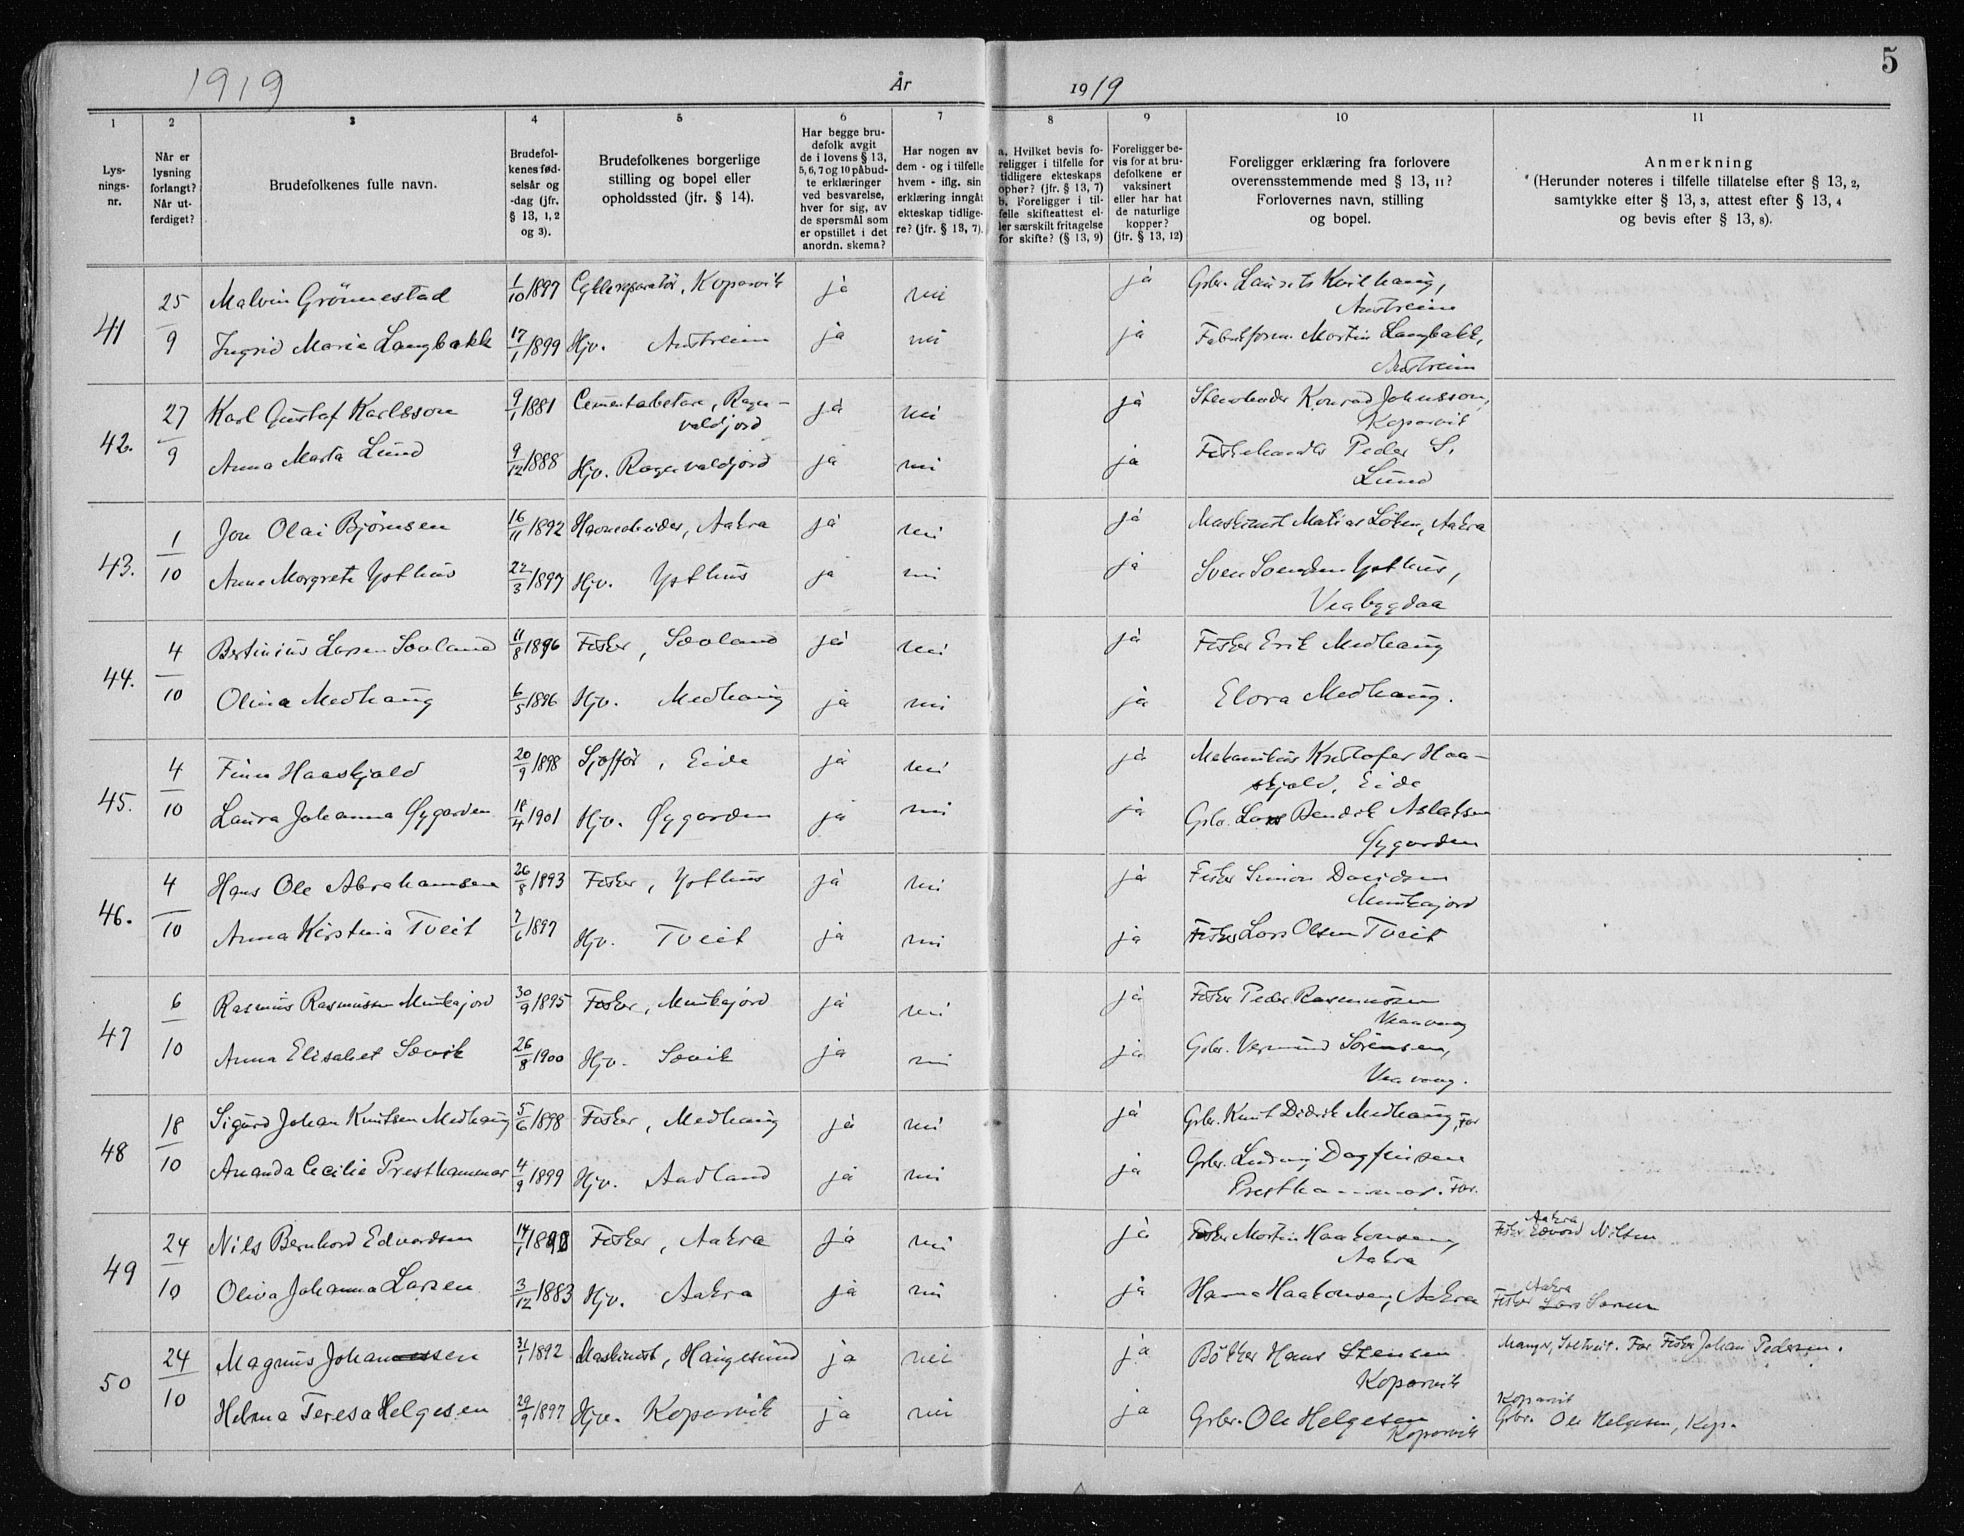 1919
År
1919
5
1
2
3
4
5
6
7
8
9
10
11
Lys-
nings-
nr.
Når er
lysning
forlangt?
Når ut-
ferdiget?
Brudefolkenes fulle navn.
Brudefol-
kenes fød-
selsår og
-dag (jfr.
§ 13, 1, 2
og 3).
Brudefolkenes borgerlige
stilling og bopel eller
opholdssted (jfr. § 14).
Har begge bru-
defolk avgit
de i lovens § 13,
5, 6, 7 og 10 påbud-
te erklæringer
ved besvarelse,
hver for sig, av
de spørsmål som
er opstillet i det
anordn. skema?
Har nogen av
dem - og i tilfelle
hvem - iflg. sin
erklæring inngåt
ekteskap tidlige-
re? (jfr. § 13, 7).
a. Hvilket bevis fo-
religger i tilfelle for
tidligere ekteskaps
ophør? (jfr. § 13, 7)
b. Foreligger i til-
felle skifteattest el-
ler særskilt fritagelse
for skifte? (§ 13, 9)
Foreligger be-
vis for at bru-
defolkene er
vaksinert
eller har hat
de naturlige
kopper?
(jfr. § 13, 12)
Foreligger erklæring fra forlovere
overensstemmende med § 13, 11?
Forlovernes navn, stilling
og bopel.
Anmerkning
(Herunder noteres i tilfelle tillatelse efter § 13, 2,
samtykke efter § 13, 3, attest efter § 13, 4
og bevis efter § 13, 8).
41 25/9 Malvin Grönnestad 1/10 1897 Cyklereparatör, Kopervik ja nei ja Grbr. Laurits Kvilhaug,
Austreim
Ingrid Marie Langbakk 17/1 1899 Hjv. Austreim ja nei ja Fabrikform. Martin Langbakk,
Austreim
42. 27/9 Karl Gustaf Karlsson 9/1 1881 Cementarbeider, Ragn-
valdjord ja nei ja Konrad Johnsson,
Kopervik
Anna Marta Lund 9/12 1888 Hjv. Ragnvaldjord ja nei ja Fiskehandler Peder S.
Lund
43. 1/10 Jon Olai Bjørnsen 16/11 1892 Havnearbeider, Aakra ja nei ja Maskinist Matias Løken, Aakra
Anne Margrete Ysthus 22/3 1897 Hjv. Ysthus ja nei ja Sven Svendsen Ysthus,
Veabygdaa
44. 4/10 Bertinius Larsen Sævland 11/8 1896 Fisker, Sævland ja nei ja Fisker Erik Medhaug
Olina Medhaug 6/5 1896 Hjv. Medhaug ja nei ja Elora Medhaug.
45. 4/10 Finn Haaskjold 20/9 1898 Sjofför, Eide ja nei ja Mekanikus Kristofer Haa-
skjold, Eide
Laura Johanna Øygarden 18/4 1901 Hjv. Øygarden ja nei ja Grbr. Lars Bendik Aslaksen
Øygarden
46. 4/10 Hans Ole Abrahamsen 26/8 1893 Fisker, Ysthus ja nei ja Fisker Simon Davidsen
Munkajord
Anna Kirstina Tveit 7/6 1897 Hjv. Tveit ja nei ja Fisker Lars Olsen Tveit
47 6/10 Rasmus Rasmussen Munkajord 30/9 1895 Fisker, Munkajord ja nei ja Fisker Peder Rasmussen
Veavaag
Anna Elisabet Sævik 26/8 1900 Hjv. Sævik ja nei ja Grbr. Vermund Sörensen,
Veavaag.
48 18/10 Sigurd Johan Knutsen Medhaug 5/6 1898 Fisker, Medhaug ja nei ja Grbr. Knut Didrik Medhaug, Far
Ananda Cecilie Presthammar 4/9 1899 Hjv. Aadland ja nei ja Grbr. Ludvig Dagfinsen
Presthammar. Far.
49 24/10 Nils Bernhard Edvardsen 14/1 Fisker, Aakra ja nei ja Fisker Martin Haakonsen,
Aakra
Aakra
Fisker Edvard Nilsen
Oliva Johanna Larsen 3/12 1883 Hjv. Aakra ja nei ja Hanna Haakonsen, Aakra
Aakra
Fisker Lars
50 24/10 Magnus Johannessen 31/1 1892 Maskinist, Haugesund ja nei ja Bökker Hans Stensen
Kopervik
Manger, For Fisker Johan Pedersen.
Helma Teresa Helgesen 29/9 1897 Hjv. Kopervik ja nei ja Grbr. Ole Helgesen
Kopervik
Kopervik
Grbr. Ole Helgesen, Kop.